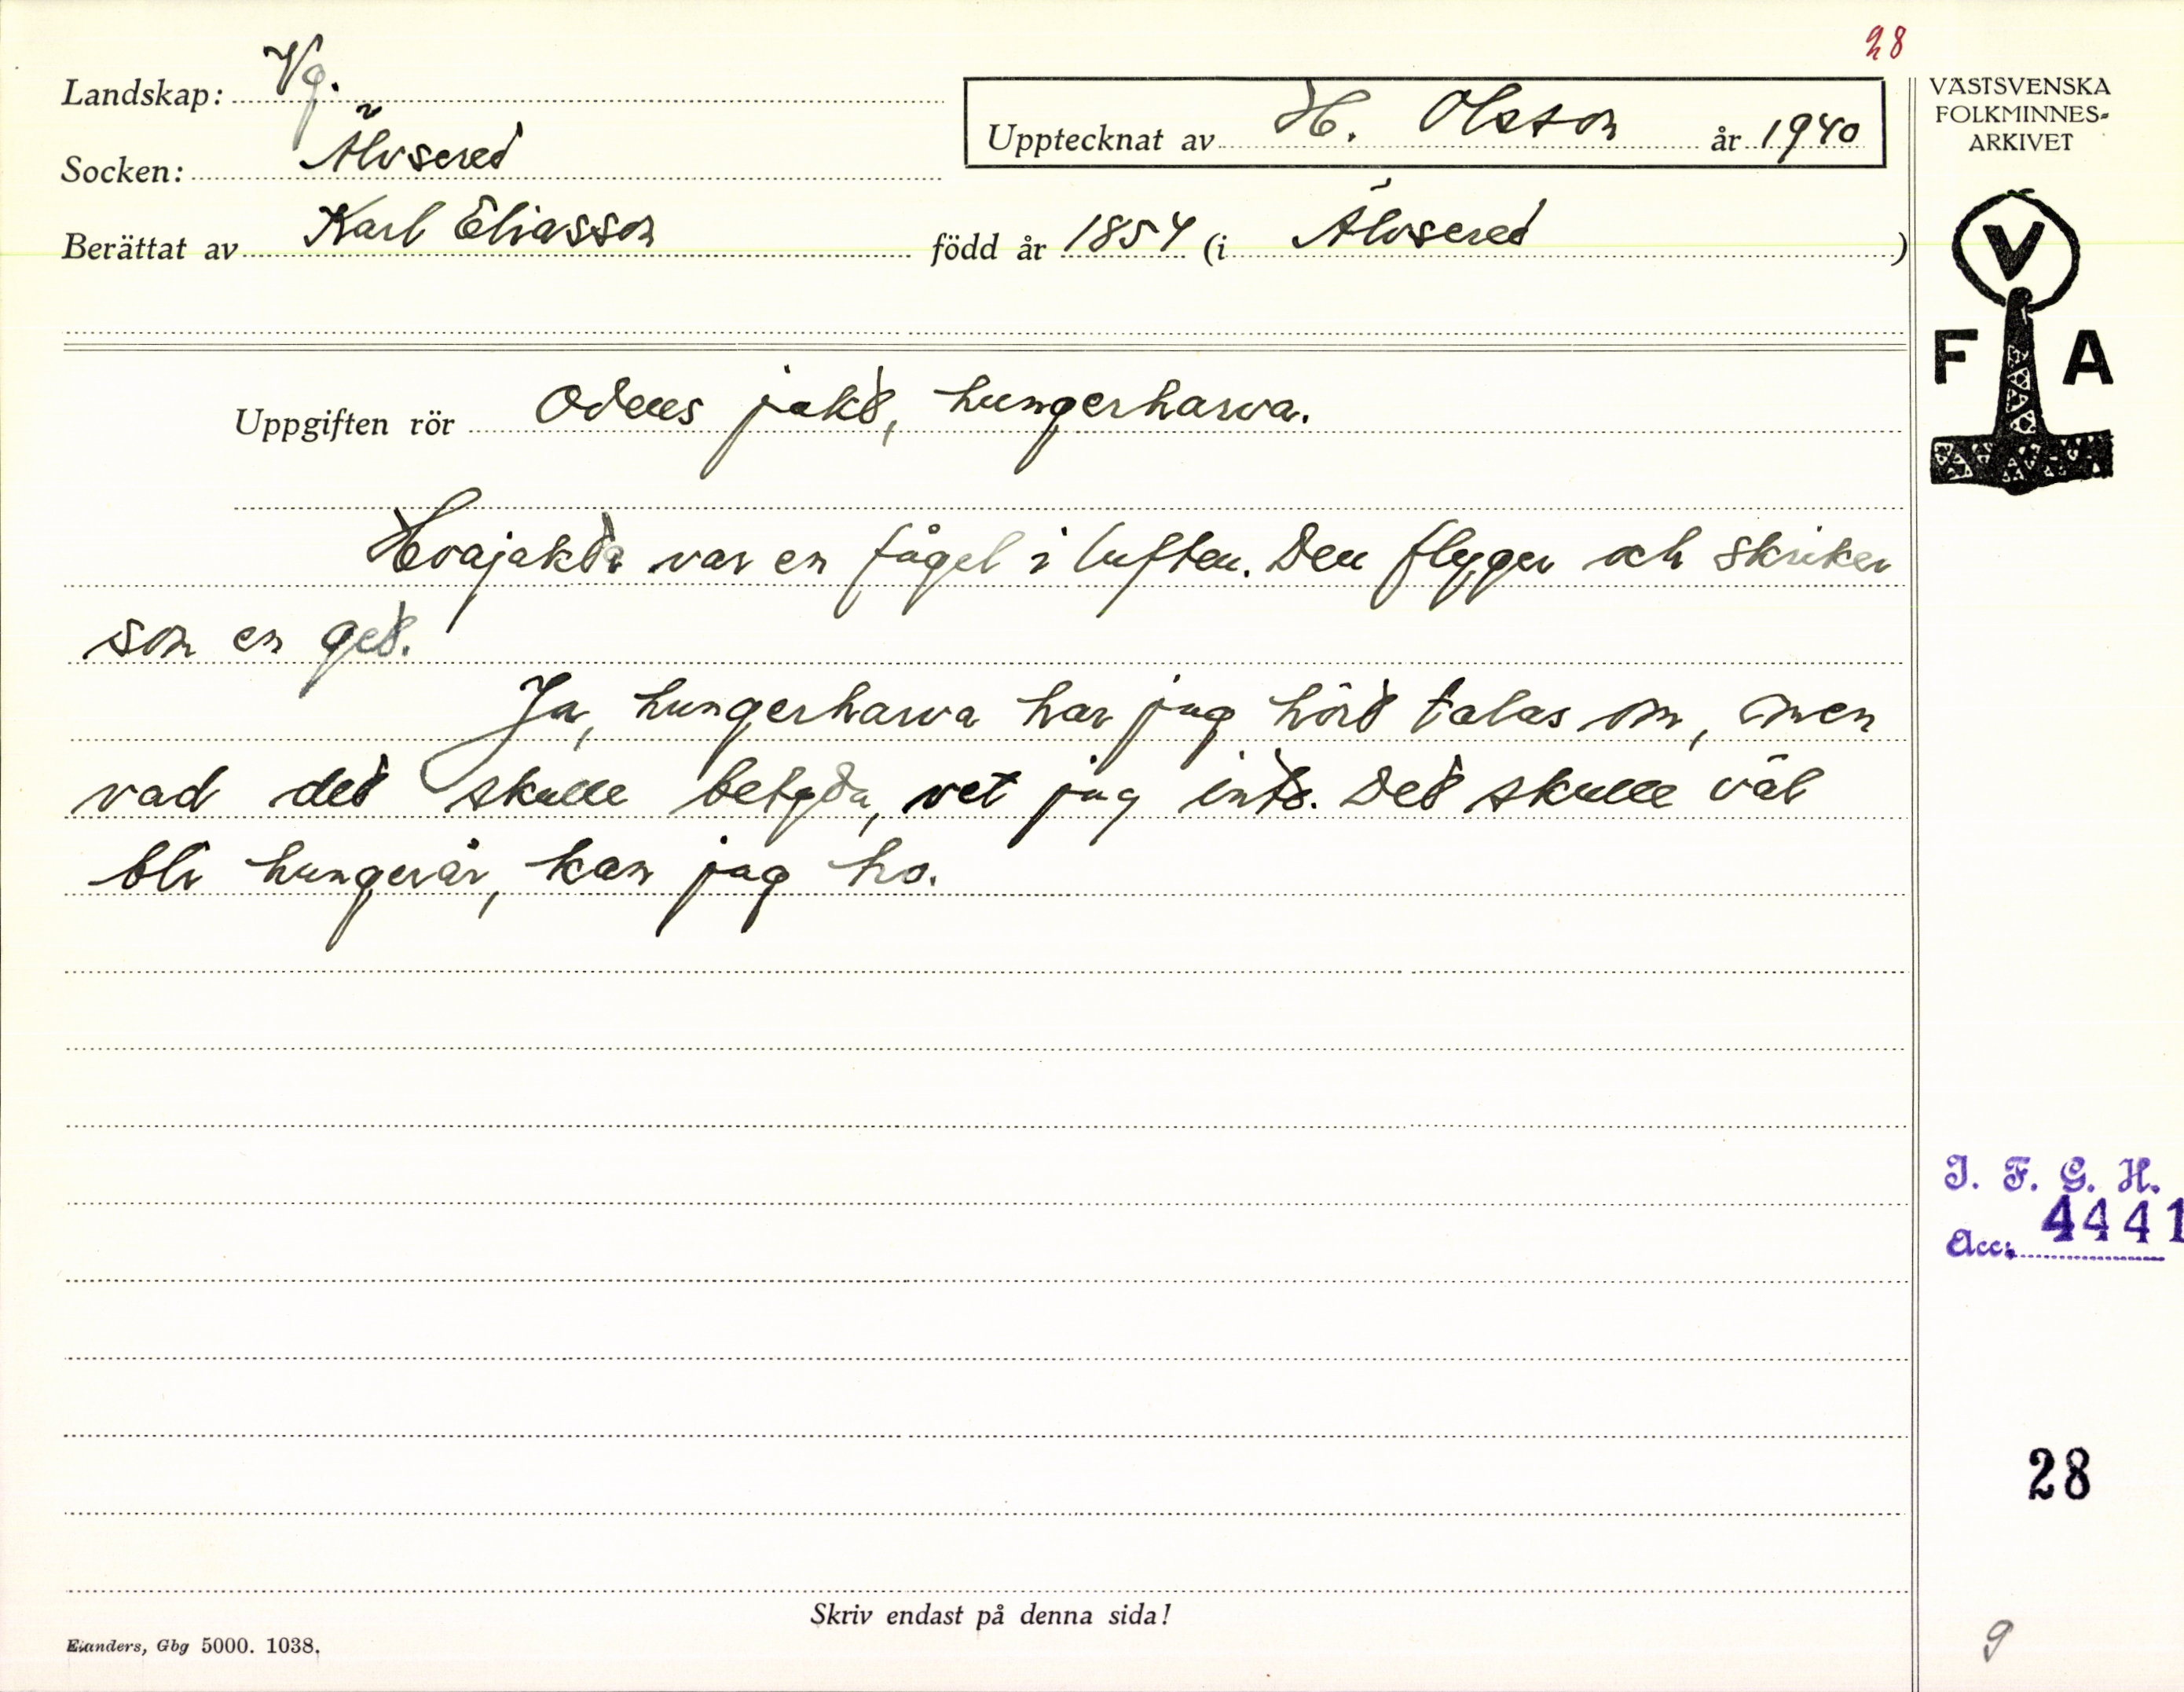 28
Landskap: Vg.
Socken: Älvsered
Upptecknat av H. Olsson år 1940
Berättat av Karl Eliasson född år 1854 (i Älvsered)
VÄSTSVENSKA
FOLKMINNES-
ARKIVET
V
F A
Uppgiften rör Odens jakt, hungerharva.
var en fågel i luften. Den flyger och skriker
som en get.
Ja, hungerharva har jag hört talas om, men
vad det skulle betyda, vet jag inte. Det skulle väl
bli hungerår, kan jag tro.
I. F. G. H.
Acc. 4441
28
Skriv endast på denna sida!
Elanders, Gbg 5000. 1038.
9